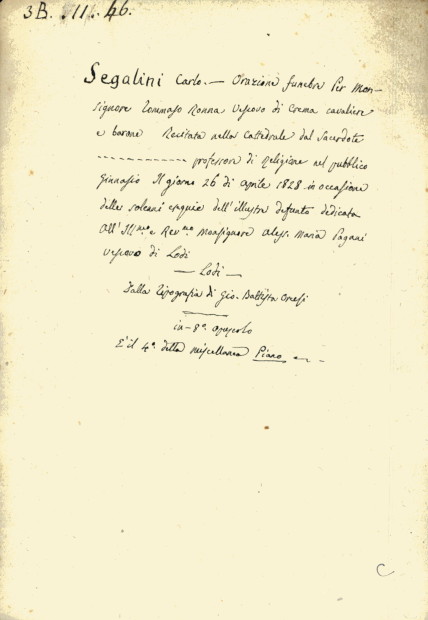 3B. II. 46.
Segalini Carlo. — Orazione funebre Per Mon-
signore Tommaso Ronna Vescovo di Crema cavaliere
e barone Recitata nella Cattedrale dal Sacerdote
------------- professore di Religione nel pubblico
Ginnasio Il giorno 26 di aprile 1828 in occasione
delle solenni esequie dell'illustre defunto dedicata
All'Ill.mo e Rev.mo Monsignore Aless. Maria Pagani
Vescovo di Lodi
— Lodi —
Dalla Tipografia di Gio. Battista Orcesi
in-8°. opuscolo
E' il 4°. della miscellanea Piano
C